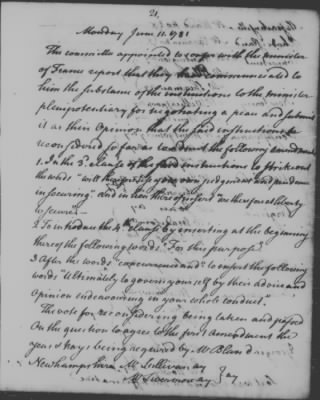 21.
Monday June 11. 1781
The committee appointed to confer with the minister
of France report that they have communicated to
him the substance of the instructions to the minister
plenipotentiary for negotiating a peace and submit
it as their Opinion that the said instructions be
reconsidered so far as to admit the following amendments
1. In the 3d clause of the said instructions to strike out
the words "will use your own judgment and prudence
in securing" and in lieu thereof insert "are therefore at liberty
to secure"
2. To introduce the 4th clause by inserting at the beginning
thereof the following words "For this purpose"
3 After the words "concurrence and" to insert the following
words "Ultimately to govern yourself by their advice and
Opinion endeavouring in your whole conduct".
The vote for reconsidering being taken and passed
On the question to agree to the first amendment the
yeas & nays being required by Mr Bland
Newhampshire Mr Sullivan ay
Mr Livermore ay } ay